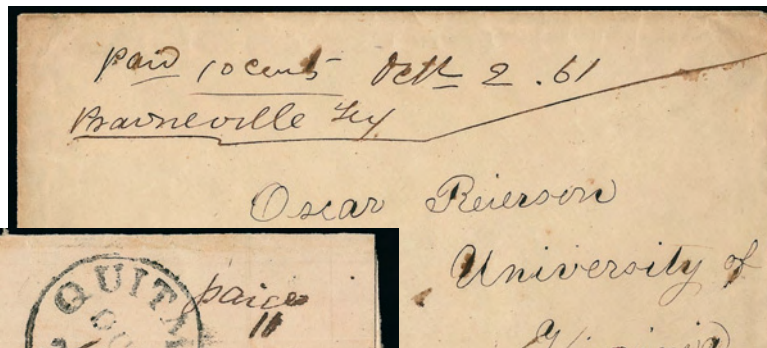 paid 10 cents Octh 2. 61
Prairieville Tex
Oscar Reierson
University of
Virginia
QUIT
paid